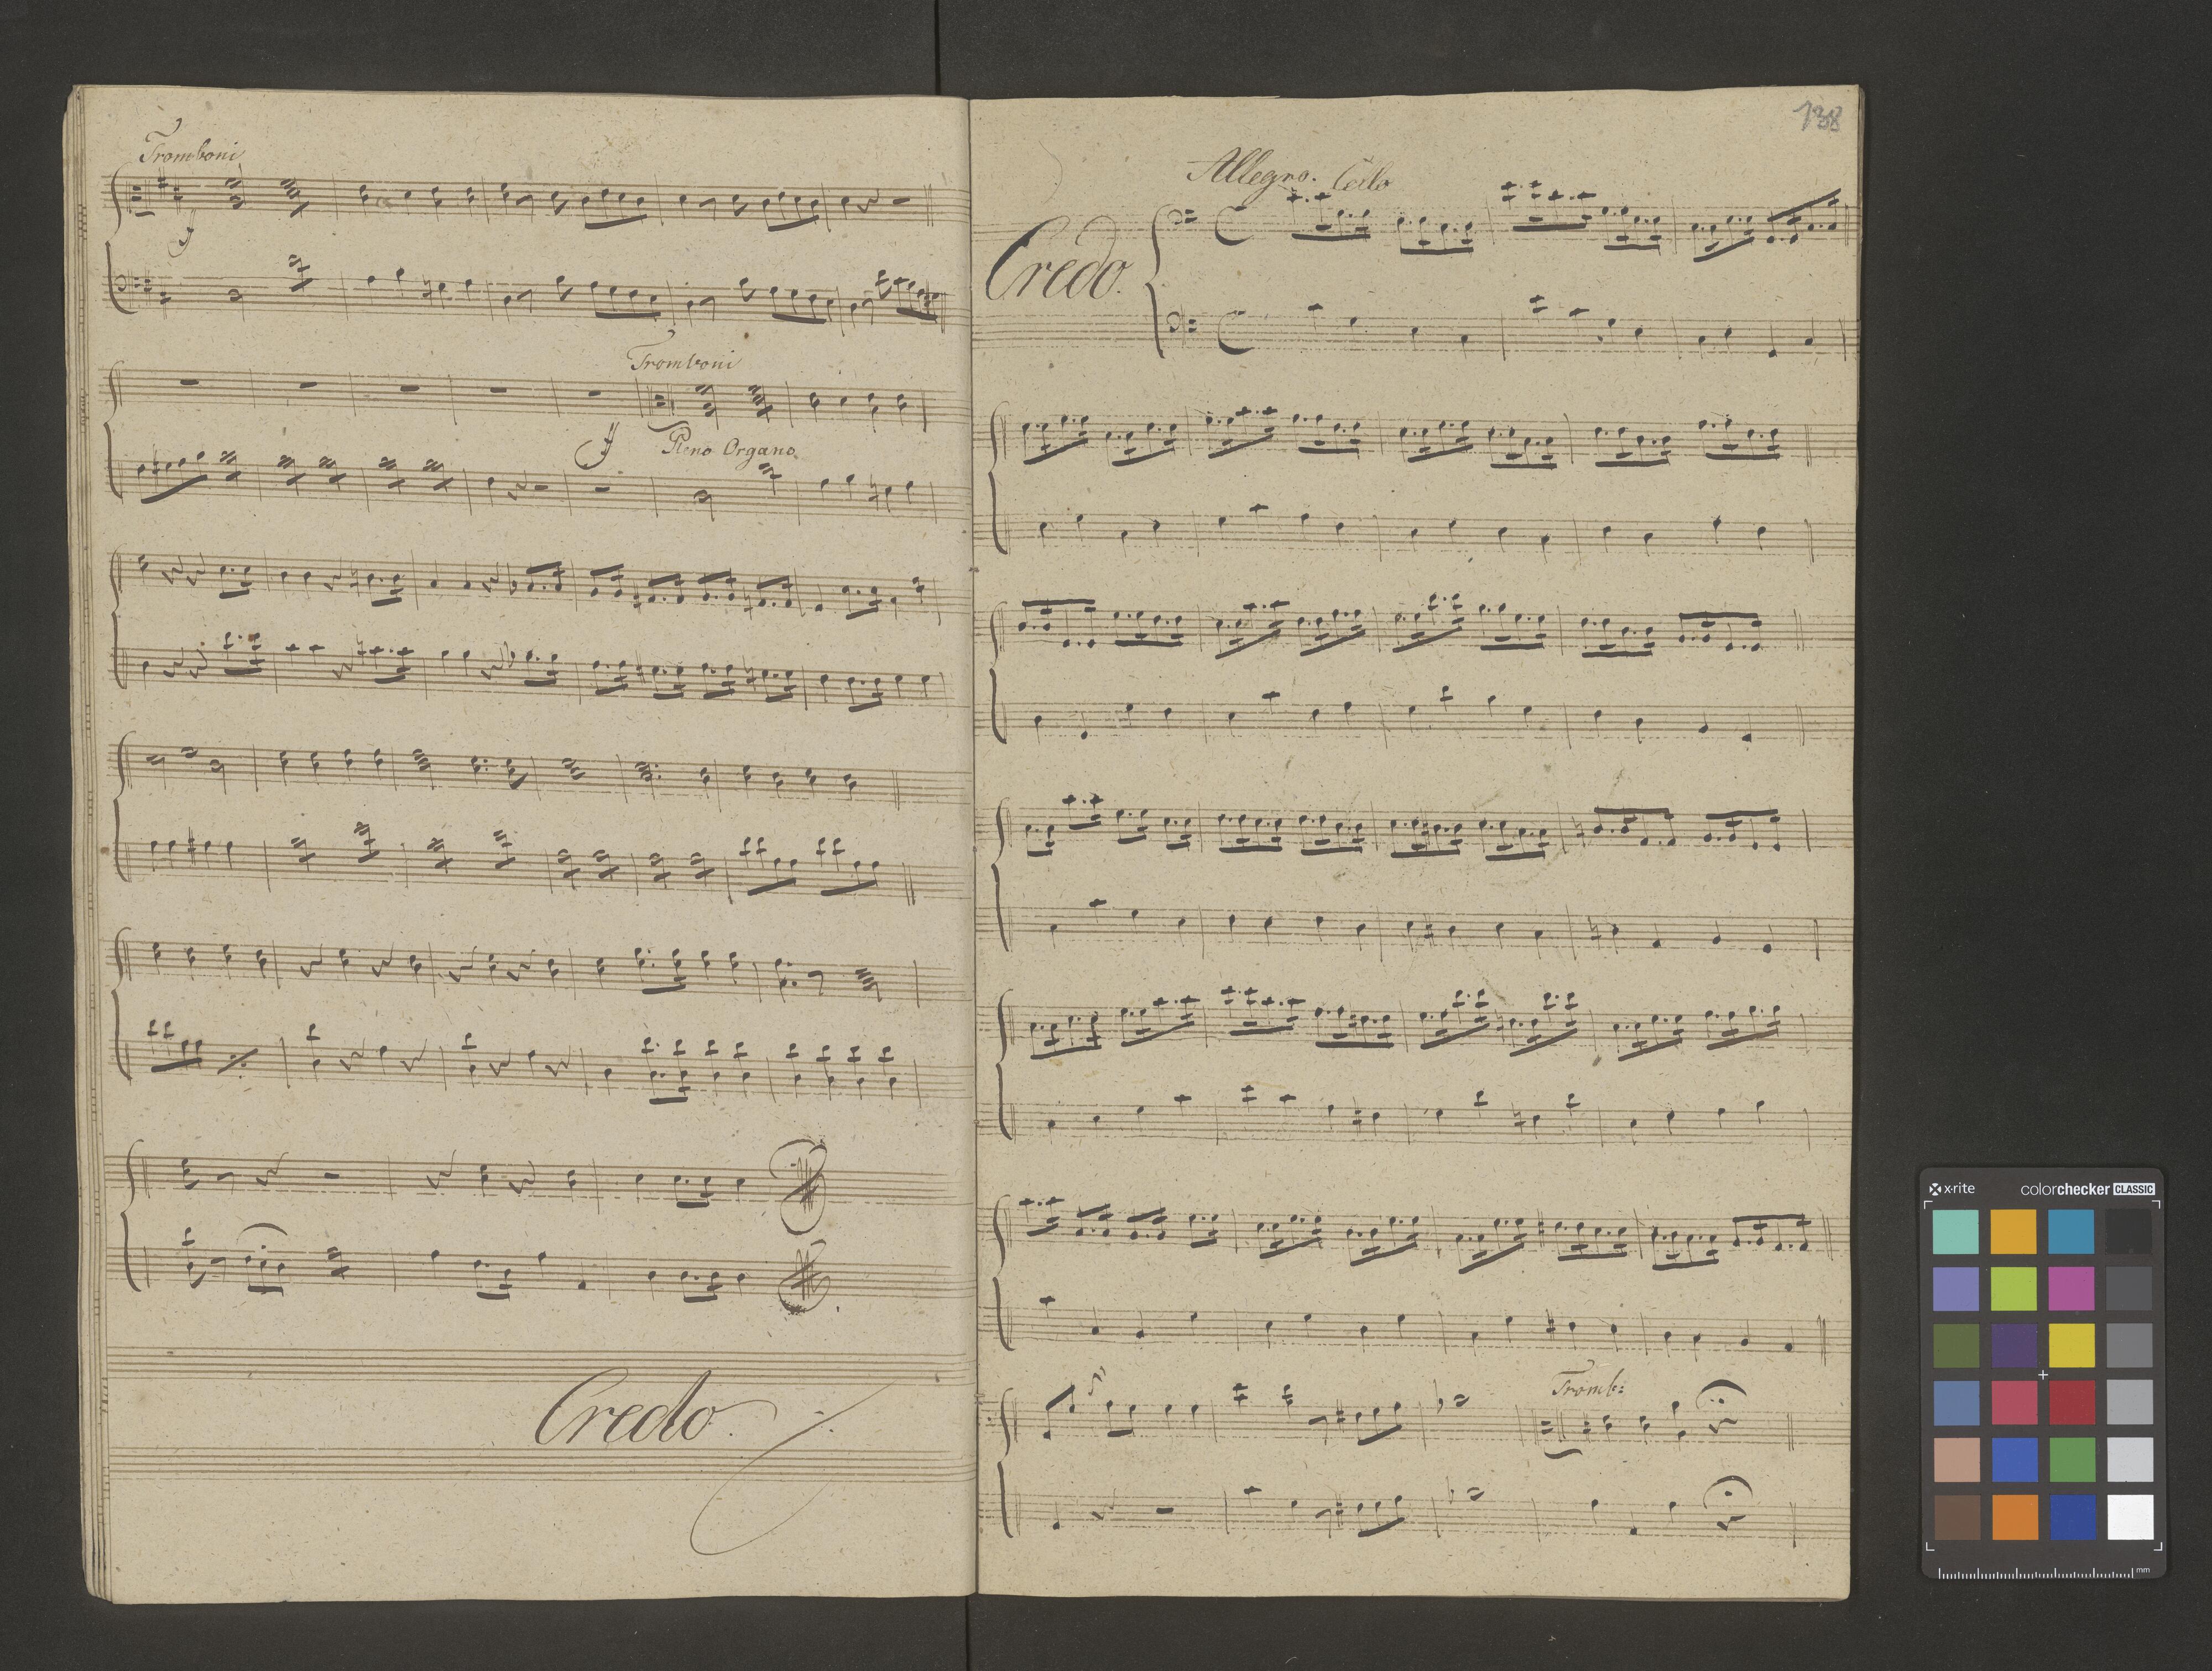 Tromboni
Tromboni
Pleno Organo
Credo.
138
Allegro. Cello
Credo.
Tromb:
x-rite colorchecker CLASSIC
mm